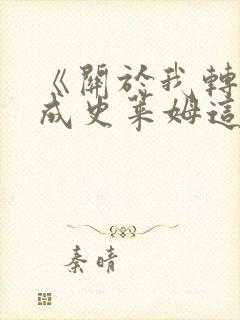 《關於我轉
成史萊姆這
秦晴